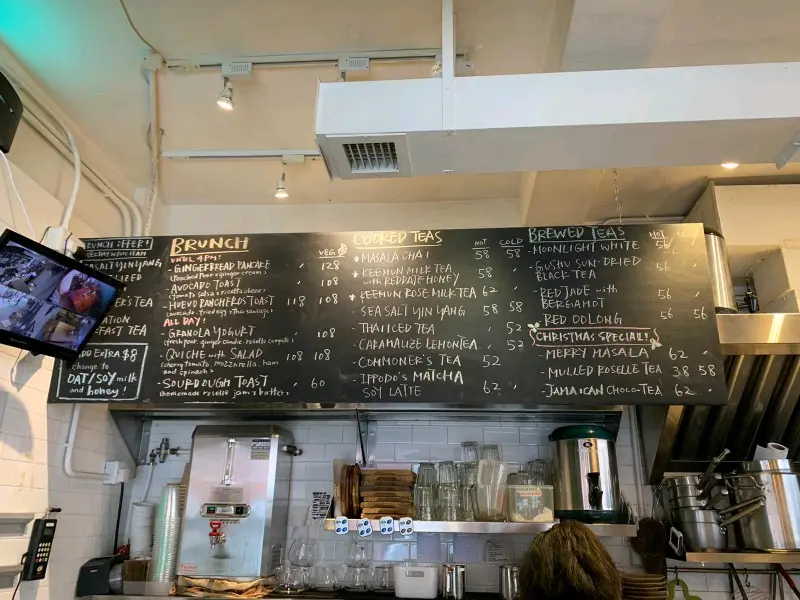 BRUNCH OFFER!
ADD EXTRA $8
change to
OAT/SOY milk
and honey!
BRUNCH
UNTIL 4PM!
VEG
- GINGERBREAD PANCAKE 128
(Poached Pear & ginger cream)
- AVOCADO TOAST 108
(tomato salsa & ricotta cheese)
- HUEVO RANCHEROS TOAST 118 108
(avocado, fried egg, Thai sausage)
ALL DAY!
- GRANOLA YOGURT 108
(fresh pear, ginger candie, roselle compote)
- QUICHE with SALAD 108 108
(cherry tomato, mozzarella, ham
and spinach)
- SOURDOUGH TOAST 60
(homemade roselle jam & butter)
COOKED TEAS HOT COLD
* MASALA CHAI 58 58
* KEEMUN MILK TEA
with RED DATE HONEY 58
* KEEMUN ROSE MILK TEA 62
- SEA SALT YIN YANG 58 58
- THAI ICED TEA 52
- CARAMALIZE LEMON TEA 52
- COMMONER'S TEA 52
- IPPODO'S MATCHA
SOY LATTE 62
BREWED TEAS HOT
- MOONLIGHT WHITE 56
- GUSHU SUN-DRIED
BLACK TEA 56
- RED JADE with
BERGAMOT 56
- RED OOLONG 56 56
CHRISTMAS SPECIAL!
- MERRY MASALA 62
- MULLED ROSELLE TEA 38 58
- JAMAICAN CHOCO-TEA 62